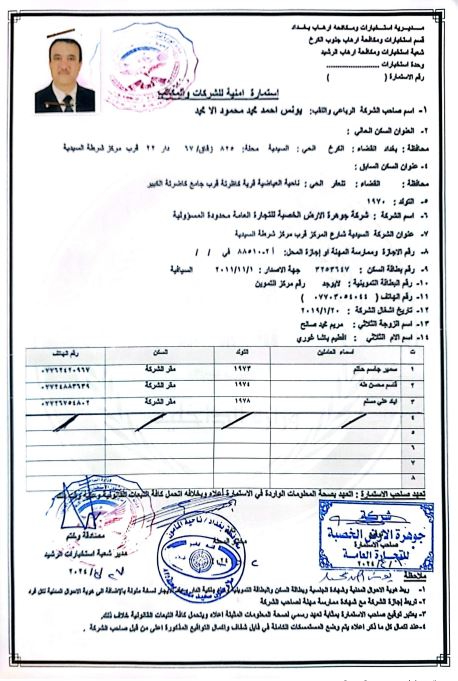 مديرية استخبارات ومكافحة ارهاب بغداد
قسم استخبارات ومكافحة ارهاب جنوب الكرخ
شعبة استخبارات ومكافحة ارهاب الرشيد
وحدة استخبارات ....................
رقم الاستمارة ( )
استمارة امنية للشركات والمكاتب
١- اسم صاحب الشركة الرباعي واللقب: يونس احمد محمد محمود الا محمد
٢- العنوان السكن الحالي :
محافظة: بغداد القضاء: الكرخ الحي: السيدية محلة: ٨٢٥ زقاق/ ٦٧ دار ٢٢ قرب مركز شرطة السيدية
٤- عنوان السكن السابق:
محافظة: القضاء: تلعفر الحي: ناحية العياضية قرية قرب جامع الكبير
٥- التولد : ١٩٧٠
٦- اسم الشركة : شركة جوهرة الارض الخصبة للتجارة العامة محدودة المسؤولية
٧- عنوان الشركة السيدية شارع المركز قرب مركز شرطة السيدية
٨- رقم الاجازة وممارسة المهنة او إجازة المحل: أ٢-٨٨٥١٠ في / /
٩- رقم بطاقة السكن : ٣٢٥٣٦٤٧ جهة الاصدار: ٢٠١١/١١/١
١٠- رقم البطاقة التموينية : لايوجد رقم مركز التموين
١١- رقم الهاتف ( ٠٧٧٠٣٠٥٤٠٤٤ )
١٢- تاريخ اشغال الشركة : ٢٠١٩/١/٢٠
١٣- اسم الزوجة الثلاثي : مريم محمد صالح
١٤- اسم الام الثلاثي : باشا
ت اسماء العاملين التولد السكن رقم الهاتف
١ سمير جاسم حاتم ١٩٧٣ مقر الشركة ٠٧٧٦٢٤٢٠٩٦٧
٢ قاسم محسن طه ١٩٧٤ مقر الشركة ٠٧٧٢٤٨٨٣٦٣٩
٣ اياد علي مسلم ١٩٧٨ مقر الشركة ٠٧٧٢٦٧٥٤٨٠٢
٤
٥
٦
٧
٨
تعهد صاحب الاستمارة : اتعهد بصحة المعلومات الواردة في الاستمارة أعلاه وبخلافه اتحمل كافة التبعات القانونية
مصادقة وختم
مدير شعبة استخبارات الرشيد
شركة
جوهرة الارض الخصبة
صاحب الاستمارة
للتجارة العامة
ملاحظة
١- ربط هوية الاحوال المدنية وشهادة الجنسية وبطاقة السكن والبطاقة التموينية
٢- تربط إجازة الشركة مع شهادة ممارسة مهنة لصاحب الشركة
٣- يعتبر توقيع صاحب الاستمارة بمثابة تعهد رسمي لصحة المعلومات المثبتة اعلاه ويتحمل كافة التبعات القانونية خلاف ذلك.
٤- عند اكمال كل ما ذكر اعلاه يتم وضع المستمسكات الكاملة في فايل شفاف واكمال التواقيع المذكورة اعلى من قبل صاحب الشركة .